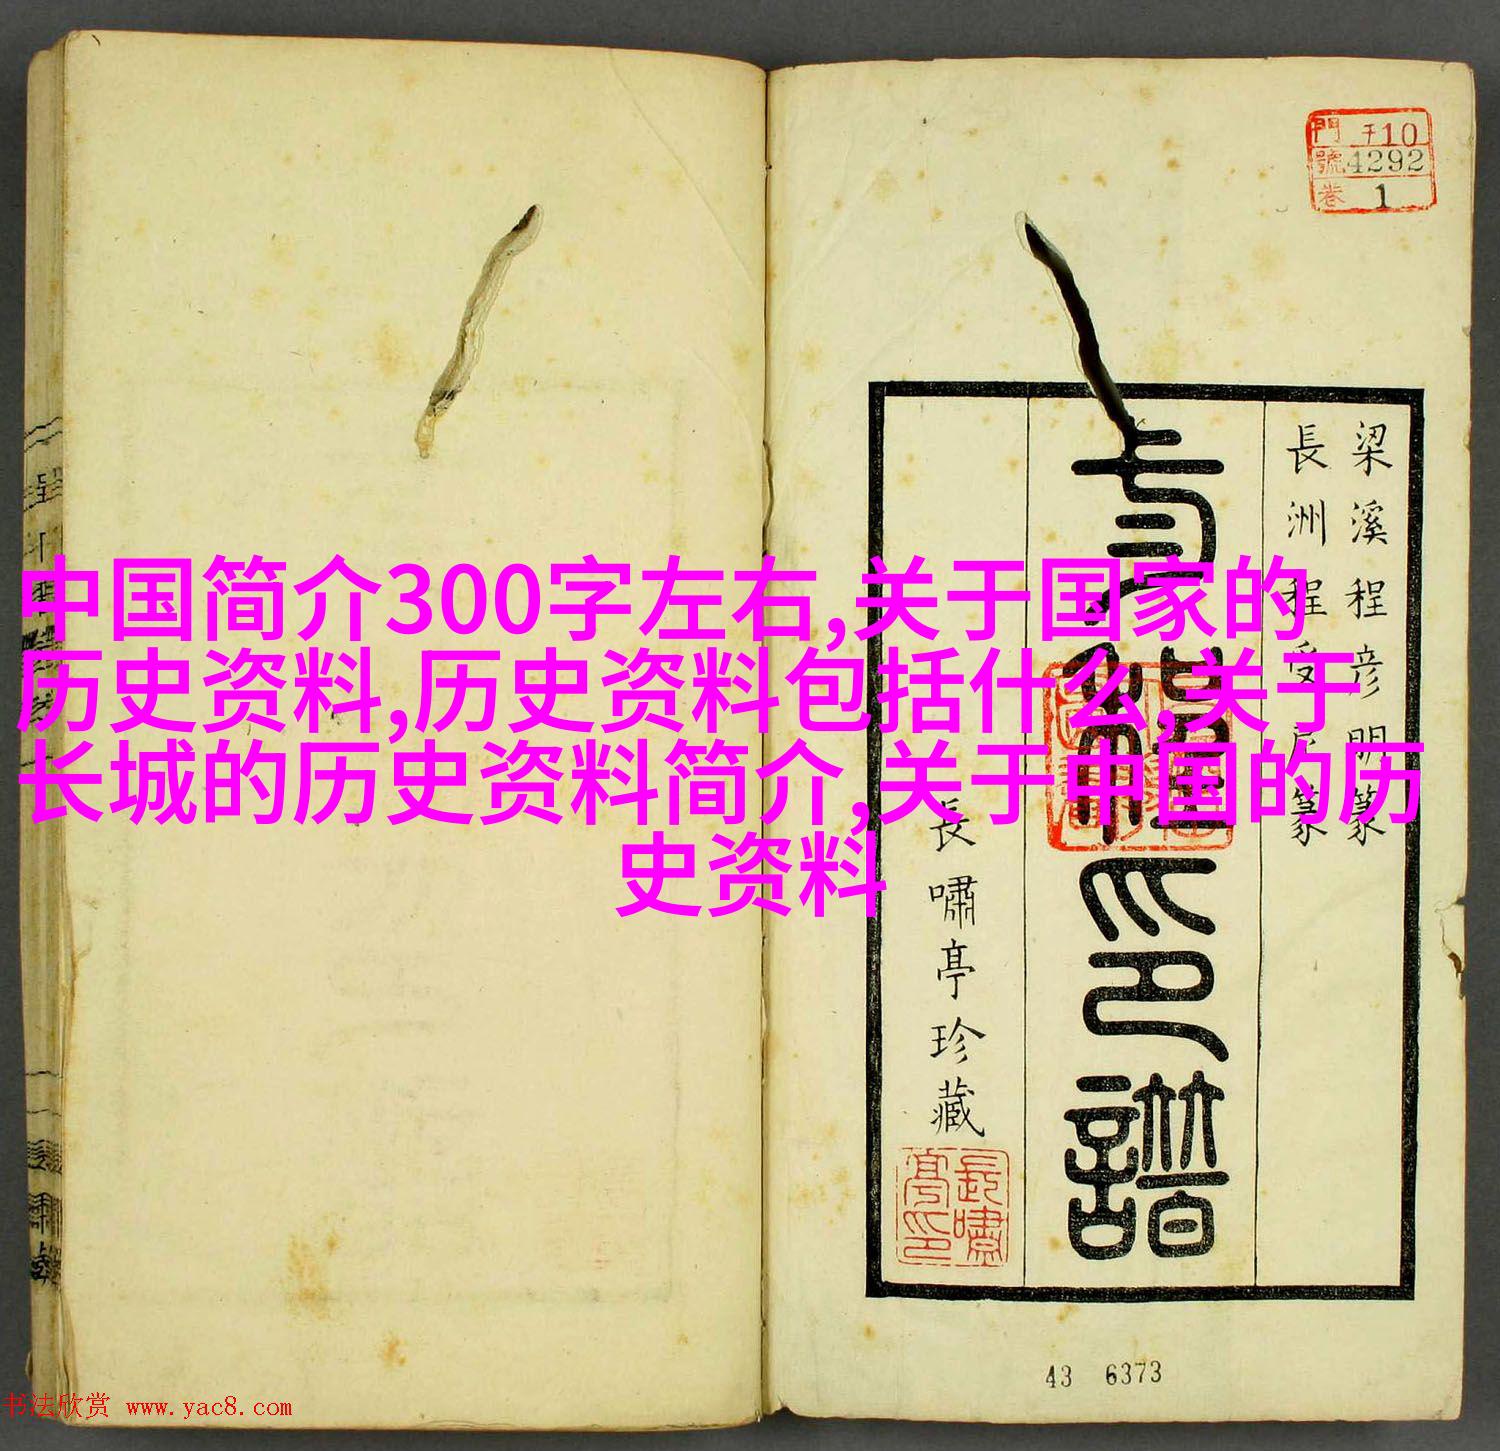 門 于10
號 4292
卷 1
中国简介300字左右,关于国家的
历史资料,历史资料包括什么,关于
长城的历史资料简介,关于中国的历
史资料
梁溪程彦明篆
長洲程受尼篆
印譜
長嘯亭珍藏
長嘯亭印
43 6373
书法欣赏 www.yac8.com